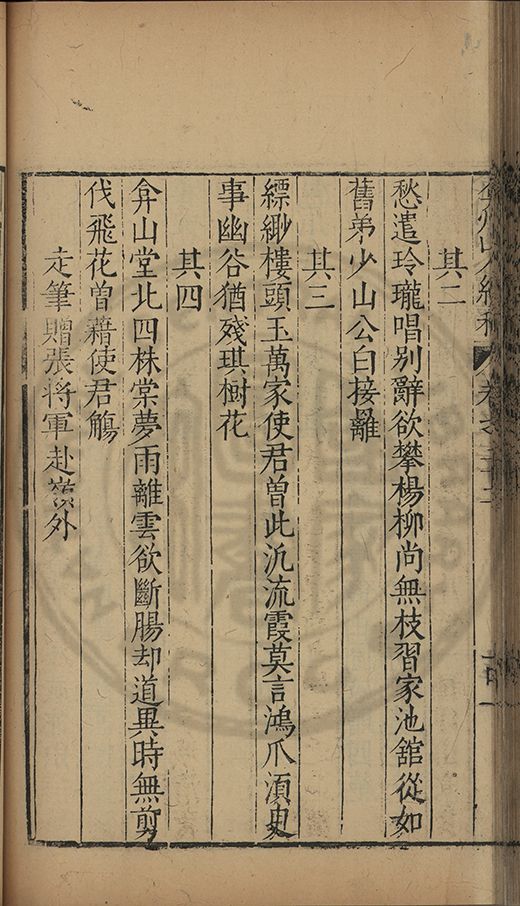 弇州山人續稿 卷之二十三
其二
愁遣玲瓏唱别辭欲攀楊柳尚無枝習家池舘從如
舊弟少山公白接䍦
其三
縹緲樓頭玉萬家使君曽此汎流霞莫言鴻爪湏臾
事幽谷猶殘琪樹花
其四
弇山堂北四株棠夢雨離雲欲斷腸却道異時無剪
伐飛花曽藉使君觴
走筆贈張将軍赴嶺外